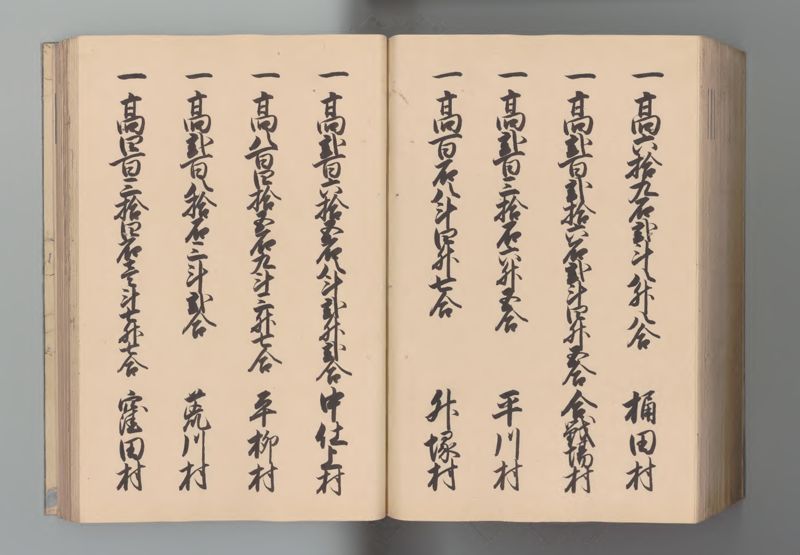 一高六拾九石弐斗八升八合 桶田村
一高弐百弐拾六石弐斗四升五合 合戦場村
一高弐百三拾石六升五合 平川村
一高百石八斗四升七合 外塚村
一高弐百六拾五石八斗弐升弐合 中仕上村
一高八百四拾五石九斗三升七合 平柳村
一高弐百八拾石三斗弐合 荒川村
一高四百三拾四石三斗七升七合 窪田村